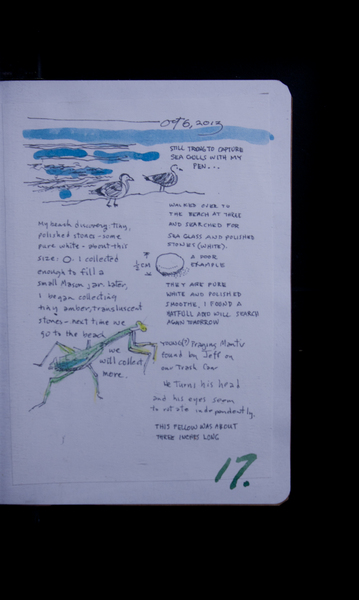 Oct 6, 2013
STILL TRYING TO CAPTURE
SEA GULLS WITH MY
PEN...
WALKED OVER TO
THE BEACH AT THREE
AND SEARCHED FOR
SEA GLASS AND POLISHED
STONES (WHITE).
A POOR
EXAMPLE
½ CM
THEY ARE PURE
WHITE AND POLISHED
SMOOTHE. I FOUND A
HATFULL AND WILL SEARCH
AGAIN TOMORROW
My beach discovery: tiny,
polished stones - some
pure white - about this
size: O. I collected
enough to fill a
small Mason jar. Later,
I began collecting
tiny amber, transluscent
stones - next time we
go to the beach
we
will collect
more.
YOUNG(?) Praying Mantis
found by Jeff on
our Trash Can
He Turns his head
and his eyes seem
to rotate independently.
THIS FELLOW WAS ABOUT
THREE INCHES LONG
17.